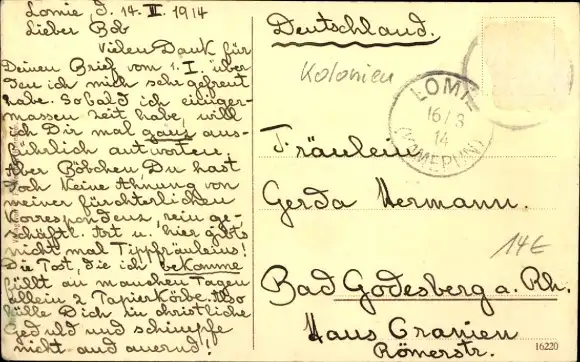 Lomie, d. 14. III. 1914
Lieber Bob
Vielen Dank für
Deinen Brief vom 1. I. über
den ich mich sehr gefreut
habe. Sobald ich einiger-
massen Zeit habe, will
ich Dir mal ganz aus-
führlich antworten.
Aber Böbchen Du hast
doch keine Ahnung von
meiner fürchterlichen
Korrespondenz, rein ge-
schäftl. Art u. hier gibt's
nicht mal Tippfräuleins!
Die Post, die ich bekomme
füllt an manchen Tagen
allein 2 Papierkörbe. Also
hülle Dich in christliche
Geduld und schimpfe
nicht auf unsrud!
Deutschland.
Kolonien
LOMIE
16/3
14
(KAMERUN)
Fräulein
Gerda Hermann.
14E
Bad Godesberg a. Rh.
Haus Oranien
Römerstr.
16220